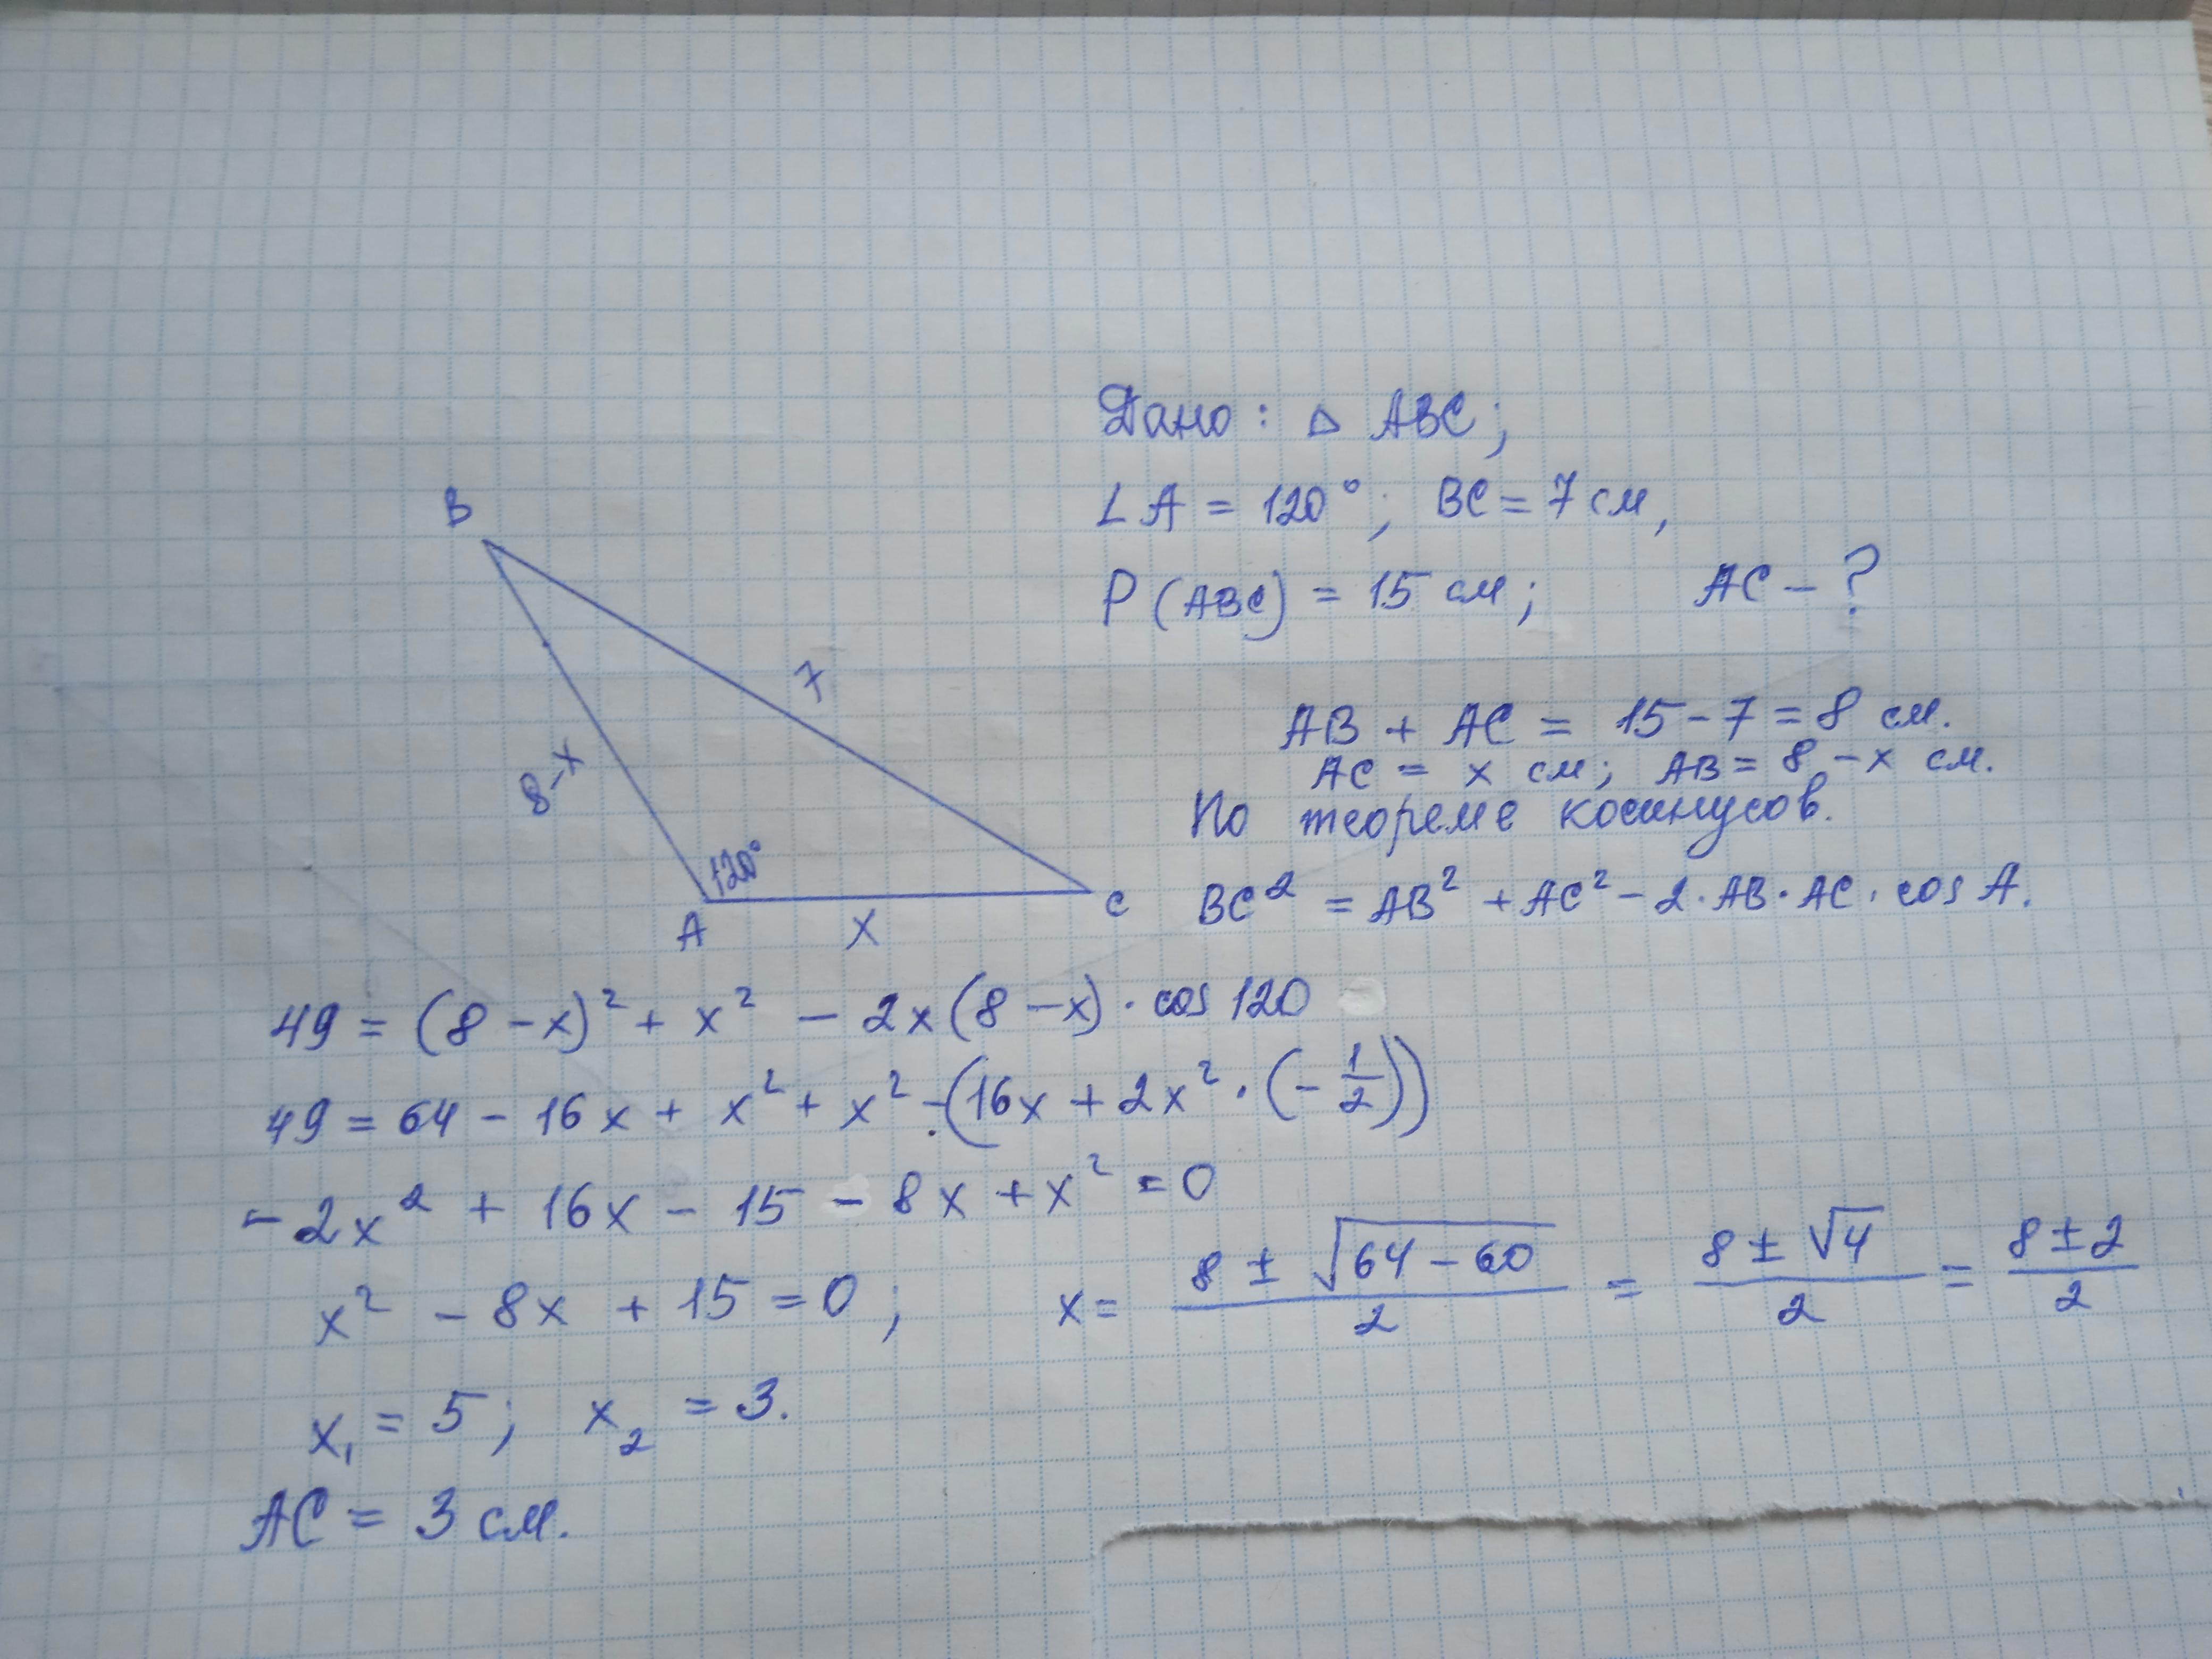 Дано: △ ABC;
∠A = 120°; BC = 7 см,
P (ABC) = 15 см; AC – ?
B
7
8-x
120°
A
x
C
AB + AC = 15 – 7 = 8 см.
AC = x см; AB = 8 – x см.
По теореме косинусов.
BC² = AB² + AC² – 2 · AB · AC · cos A.
49 = (8 – x)² + x² – 2x(8 – x) · cos 120
49 = 64 – 16x + x² + x² – (16x + 2x² · (– 1/2))
– 2x² + 16x – 15 – 8x + x² = 0
x² – 8x + 15 = 0; x = (8 ± √(64 – 60))/2 = (8 ± √4)/2 = (8 ± 2)/2
x₁ = 5; x₂ = 3.
AC = 3 см.